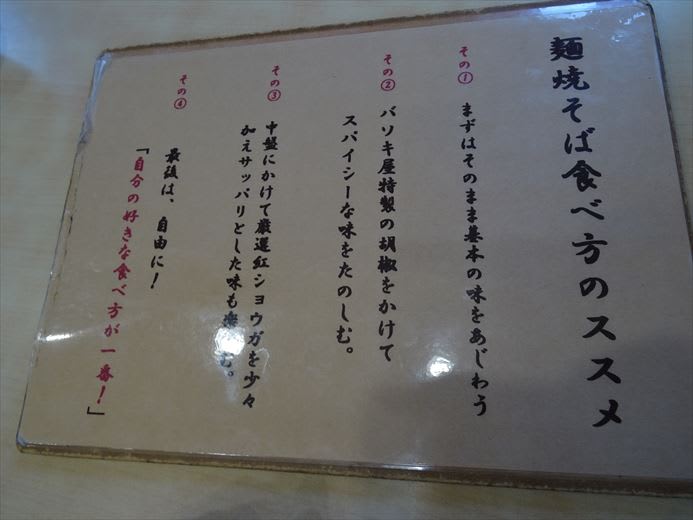 麺焼そば食べ方のススメ
その①
まずはそのまま基本の味をあじわう
その②
バソキ屋特製の胡椒をかけて
スパイシーな味をたのしむ。
その③
中盤にかけて厳選紅ショウガを少々
加えサッパリとした味も楽しむ。
その④
最後は、自由に!
「自分の好きな食べ方が一番!」